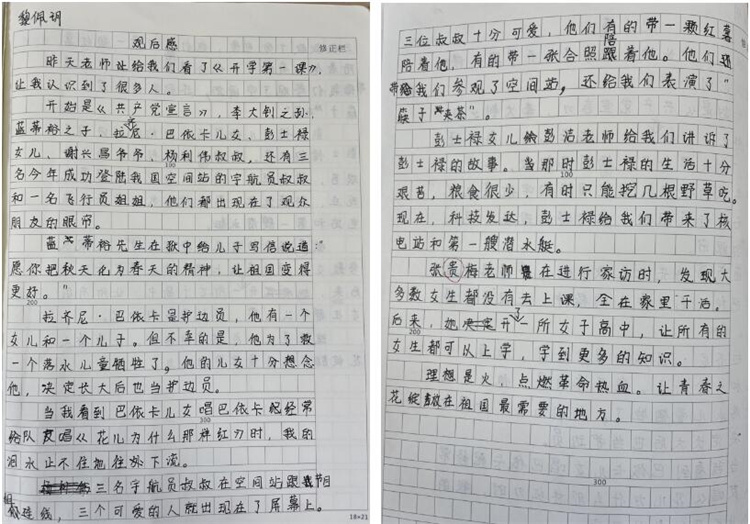 黎佩玥
观后感
修正栏
昨天老师让给我们看了《开学第一课》,
让我认识到了很多人。
开始是《共产党宣言》,李大钊之孙,
蓝蒂裕之子、拉齐尼·巴依卡儿女、彭士禄
女儿、谢兴昌爷爷、杨利伟叔叔,还有三
100
名今年成功登陆我国空间站的宇航员叔叔
和一名飞行员姐姐,他们都出现在了观众
朋友的眼帘。
蓝蒂裕先生在狱中给儿子写信说道:“
愿你把秋天化为春天的精神,让祖国变得
更好。”
200
拉齐尼·巴依卡是护边员,他有一个
女儿和一个儿子。但不幸的是,他为了救
一个落水儿童牺牲了。他的儿女十分想念
他,决定长大后也当护边员。
当我看到巴依卡儿女唱巴依卡经常
300
给队友唱《花儿为什么那样红》时,我的
泪水止不住地往外下流。
三名宇航员叔叔在空间站跟节目
组连线,三个可爱的人就出现在了屏幕上。
18×21
三位叔叔十分可爱,他们有的带一颗红薯
陪着他,有的带一张合照陪着他。他们还
带我们参观了空间站,还给我们表演了“
筷子“夹茶”。
彭士禄女儿彭洁老师给我们讲诉了
彭士禄的故事。当那时彭士禄的生活十分
100
艰苦,粮食很少,有时只能挖几根野草吃。
现在,科技发达,彭士禄给我们带来了核
电站和第一艘潜水艇。
张贵梅老师在进行家访时,发现大
多数女生都没有去上课,全在家里干活。
200
后来,她决定开了一所女子高中,让所有的
女生都可以上学,学到更多的知识。
理想是火,点燃革命热血。让青春之
花绽放在祖国最需要的地方。
300